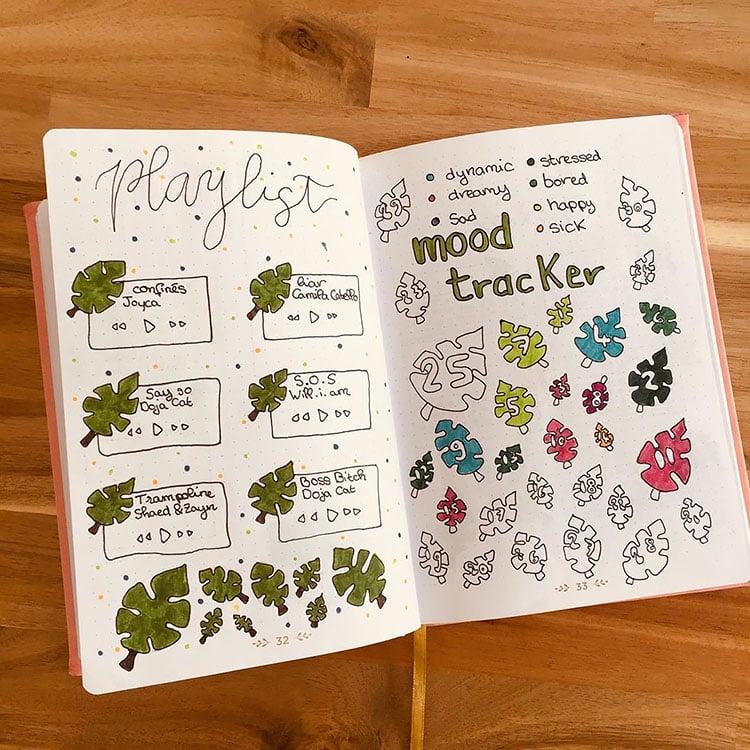 playlist
confinés
Joyca
liar
Camila Cabello
Say so
Doja Cat
S.O.S
Will.i.am
Trampoline
Shaed & Zayn
Boss Bitch
Doja Cat
32
dynamic
dreamy
sad
stressed
bored
happy
sick
mood
tracker
25
33